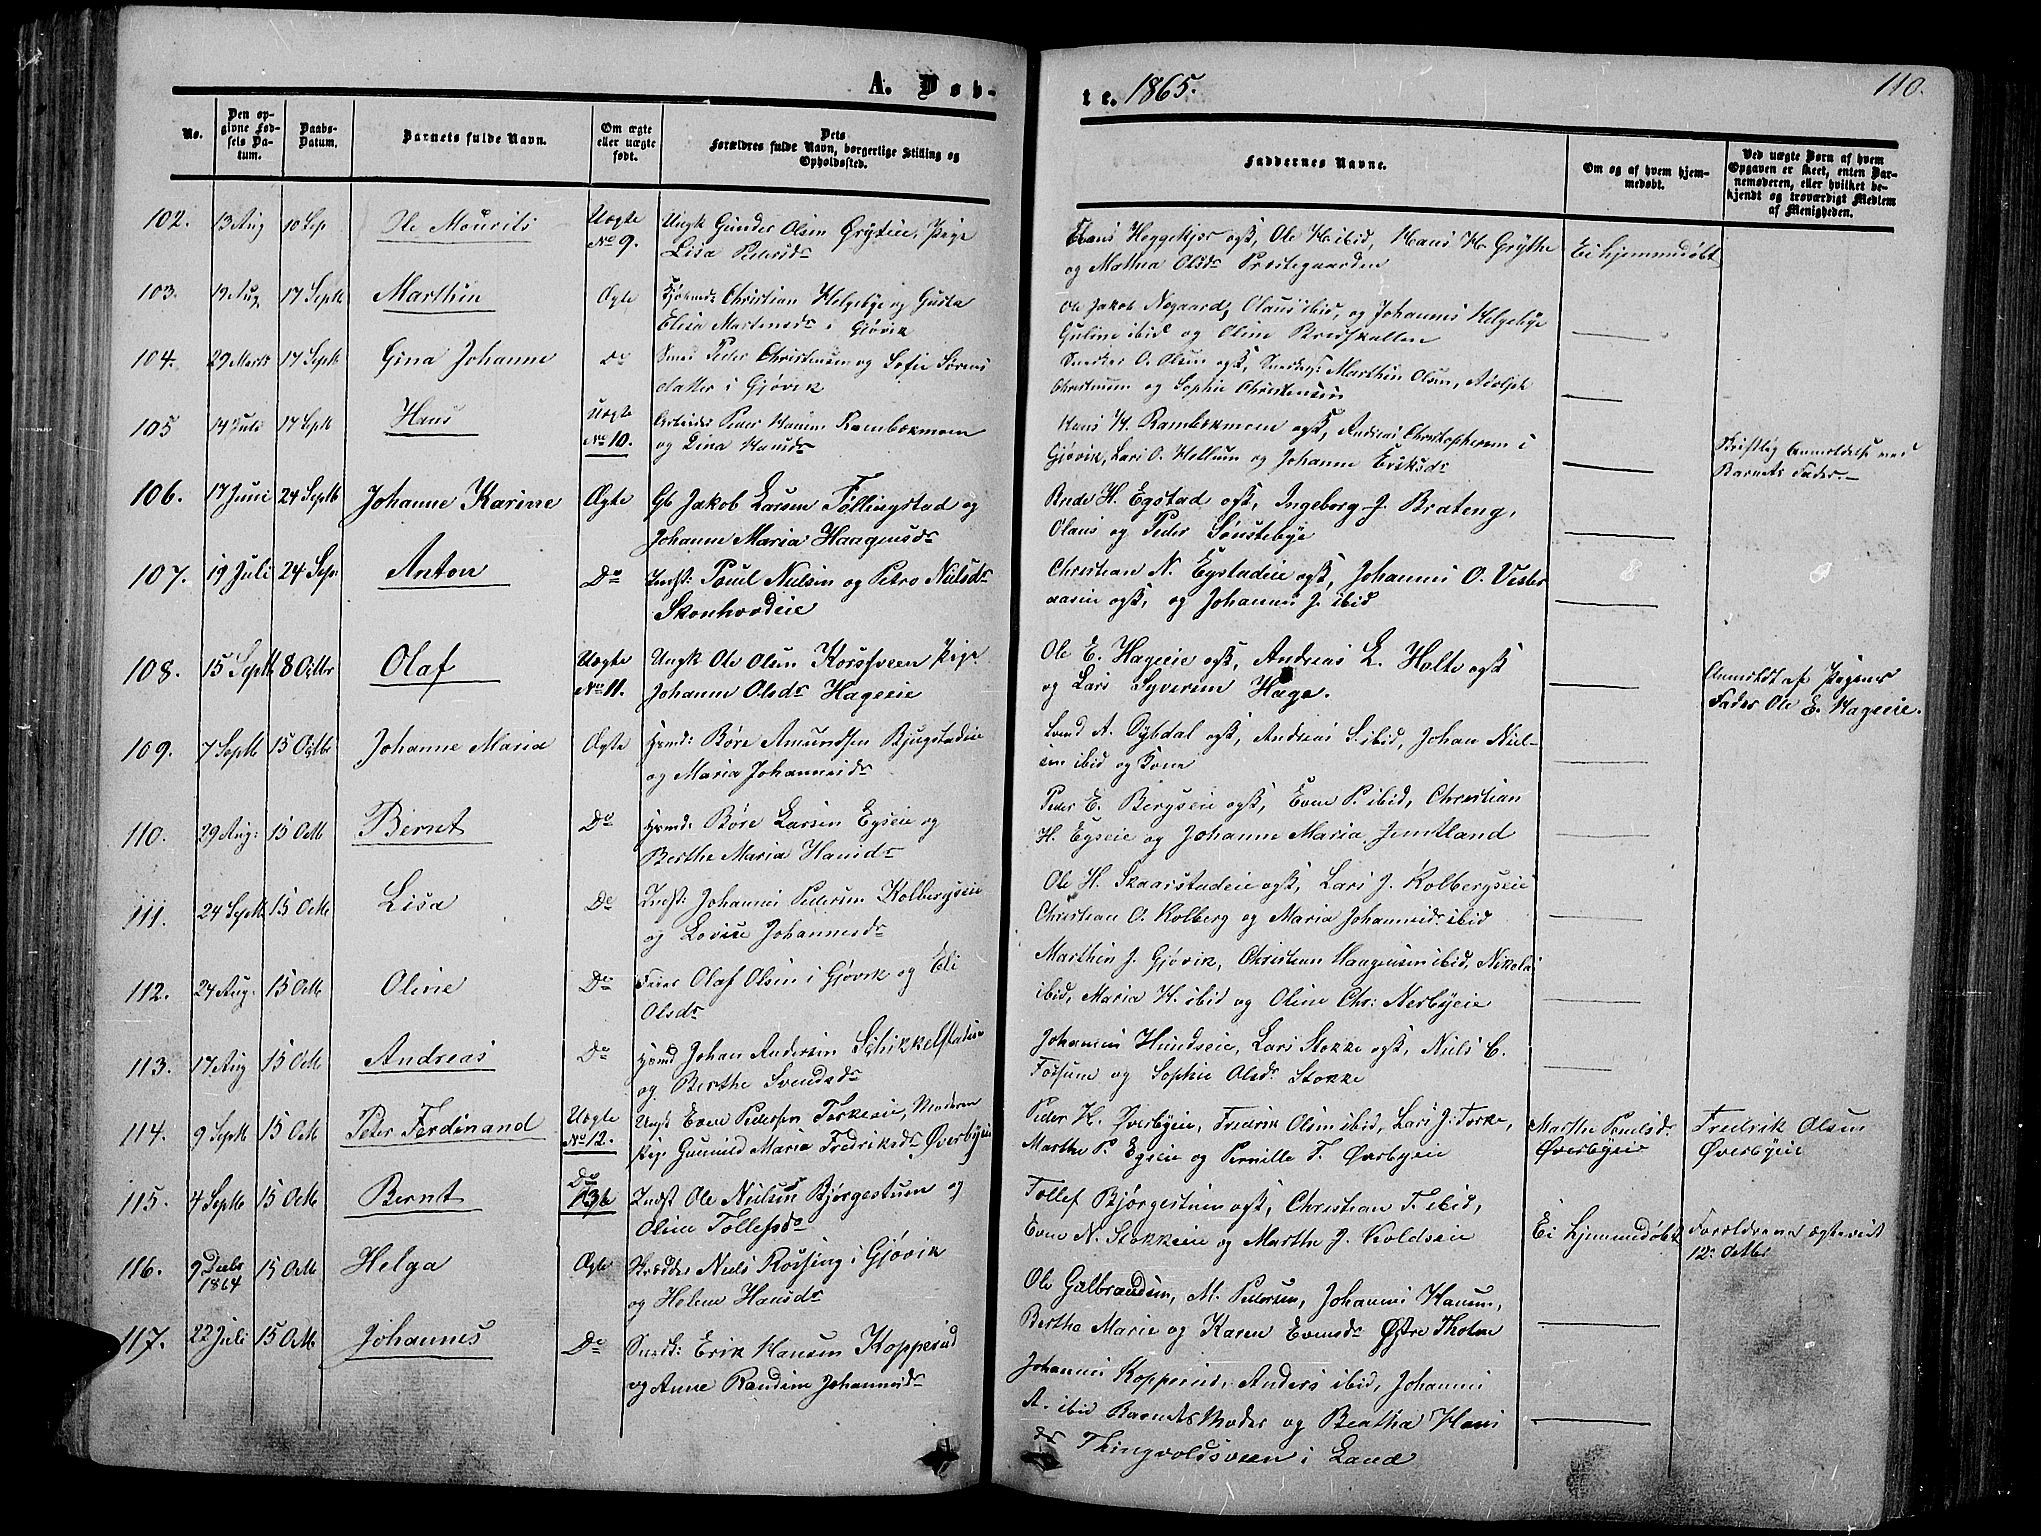 A. Døb-
te. 1865.
110.
No.
Den op-
givne Fød-
sels Da-
tum.
Daabs-
Datum.
Barnets fulde Navn.
Om ægte
eller uægte
født.
Dets
Forældres fulde Navn, borgerlige Stilling og
Opholdssted.
Faddernes Navne.
Om og af hvem hjem-
medøbt.
Ved uægte Børn af hvem
Opgaven er skeet, enten Bar-
nemoderen, eller hvilket be-
kjendt og troværdigt Medlem
af Menigheden.
102. 13 Aug 10 Sep Ole Mourits Uægte Ungk Gunder Olsen Pige
No 9. Lisa Pedersdr
Hans Heggekjær ogsk, Ole H. ibid, Hans H. Grythe Ei hjemmedøbt
og Mathea Olsdr Præstegaarden
103. 19 Aug 17 Septb Marthin Ægte Christian Helgebye og Gusta
Elisa Martensdr i Gjøvik
Ole Jakob Nøgaard, Olaus ibid, og Johannes Helgebye
Guline ibid og Oline Bredskallen
104. 29 Marts 17 Septb Gina Johanne Do Smed Peder Christensen og Sofie Sørens
datter i Gjøvik
Snedker O. Olsen ogsk, Marthin Olsen, Adolph
Christensen og Sophie Christensen
105 14 Juli 17 Septb Hans Uægte Arbeider Peder Hansen Rambekmoen
No 10. og Lina Hansdr
Hans H. Rambekmoen ogsk, Andreas Christophersen i
Gjøvik, Lars O. Hellum og Johanne Eriksdr
Skriftlig Anmeldelse ved
Barnets Fader.
106. 17 Juni 24 Septb Johanne Karine Ægte Gb Jakob Larsen Føllingstad og
Johanne Maria Haagensdr
H. Egstad ogsk, Ingeborg J. Brateng,
Olaus og Peder Sønstebye
107. 19 Juli 24 Sep. Anton Do Indst: Poul Nielsen og Petro Nielsdr
Skonhovdeie
Christian N. Egstadeie ogsk, Johannes O. Vester
aaseie ogsk, og Johannes J. ibid
108. 15 Septb 8 Octbr Olaf Uægte Ungk Ole Olsen Korsveen Pige
No 11. Johanne Olsdr Hageeie
Ole E. Hageeie ogsk, Andreas L. Holte ogsk
og Lars Syversen Hage.
Anmeldt af Pigens
Fader Ole E. Hageeie.
109. 7 Septb 15 Octbr Johanne Maria Ægte Hvmd: Børe Amundsen Bjugstadeie
og Maria Johannesdr
A. Dybdal ogsk, Andreas S. ibid, Johan Niel-
sen ibid og Kone
110. 29 Aug: 15 Octb Bernt Do Hvmd: Børe Larsen Egseie og
Berthe Maria Hansdr
Peder E. Bergseie ogsk, Even P. ibid, Christian
H. Egseie og Johanne Maria Jemtland
111. 24 Septb 15 Octb Lisa Do Indst: Johannes Pedersen Kolbergseie
og Lovise Johannesdr
Ole H. Skaarstadeie ogsk, Lars J. Kolbergseie
Christian O. Kolberg og Maria Johannesdr ibid
112. 24 Aug. 15 Octb Oline Do Feier Olaf Olsen i Gjøvik og Eli
Olsdr
Marthin J. Gjøvik, Christian Haagensen ibid, Nikolai
ibid, Maria H. ibid og Oline Chr: Nerbyeie
113. 17 Aug 15 Octb Andreas Do Hvmd Johan Andersen Schikkelstadeie
og Berthe Svendsdr
Johannes Hundseie, Lars Stokke ogsk, Niels C.
Fossum og Sophie Olsdr Stokke
114. 9 Septb 15 Octb Peter Ferdinand Uægte Ungk Even Pedersen Torkeeie, Moderen
No 12. Pige Gunnild Maria Fredriksdr Øverbyeie
Peder H. Øverbyeie, Fredrik Olsen ibid, Lars J. Torke, Marthe Poulsdr Fredrik Olsen
Marthe P. Egseie og Pernille F. Øverbyeie Øverbyeie Øverbyeie
115. 4 Septb 15 Octb Bernt Do Indst Ole Nielsen Bjørgestuen og
13 Oline Tollefsdr
Tollef Bjørgestuen ogsk, Christian T. ibid,
Even N. Stokkeeie og Marthe J. Koldseie Ei hjemmedøbt Forældrene ægteviet
12 Octbr
116. 9 Decbr 15 Octb Helga Ægte Skrædder Niels Røising i Gjøvik
1864 og Helene Hansdr
Ole Gulbrandsen, M. Pedersen, Johannes Hansen,
Berthe Marie og Karen Evensdr Østre Tholm
117. 22 Juli 15 Octb Johannes Do Snedk: Erik Hansen Kopperud
og Anne Randine Johannesdr
Johannes Kopperud, Anders ibid, Johannes
A. ibid Barnets Moder og Beatha Hans
dr Thingvoldsveen i Land